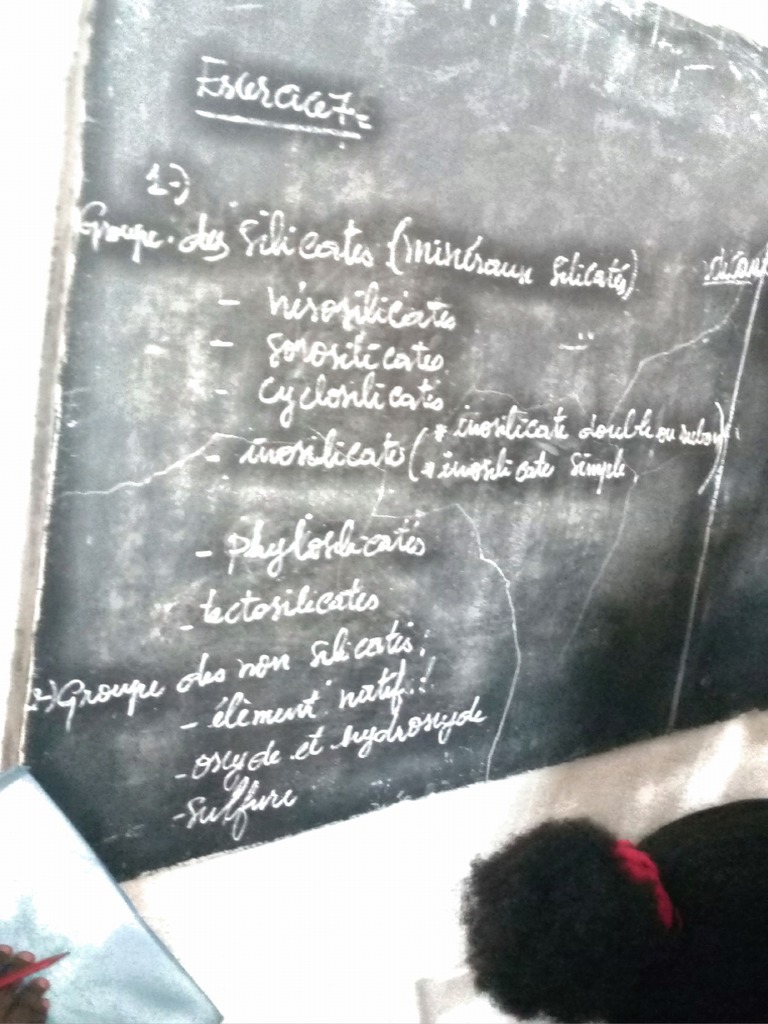 Exercice 7=
1-)
Groupe des silicates (minéraux silicatés)
- nésosilicates
- sorosilicates
- cyclosilicates
- inosilicate (* inosilicate double ou
* inosilicate simple)
- phylosilicates
- tectosilicates
2-) Groupe des non silicatés:
- élément natif:
- oxyde et hydroxyde
- sulfure